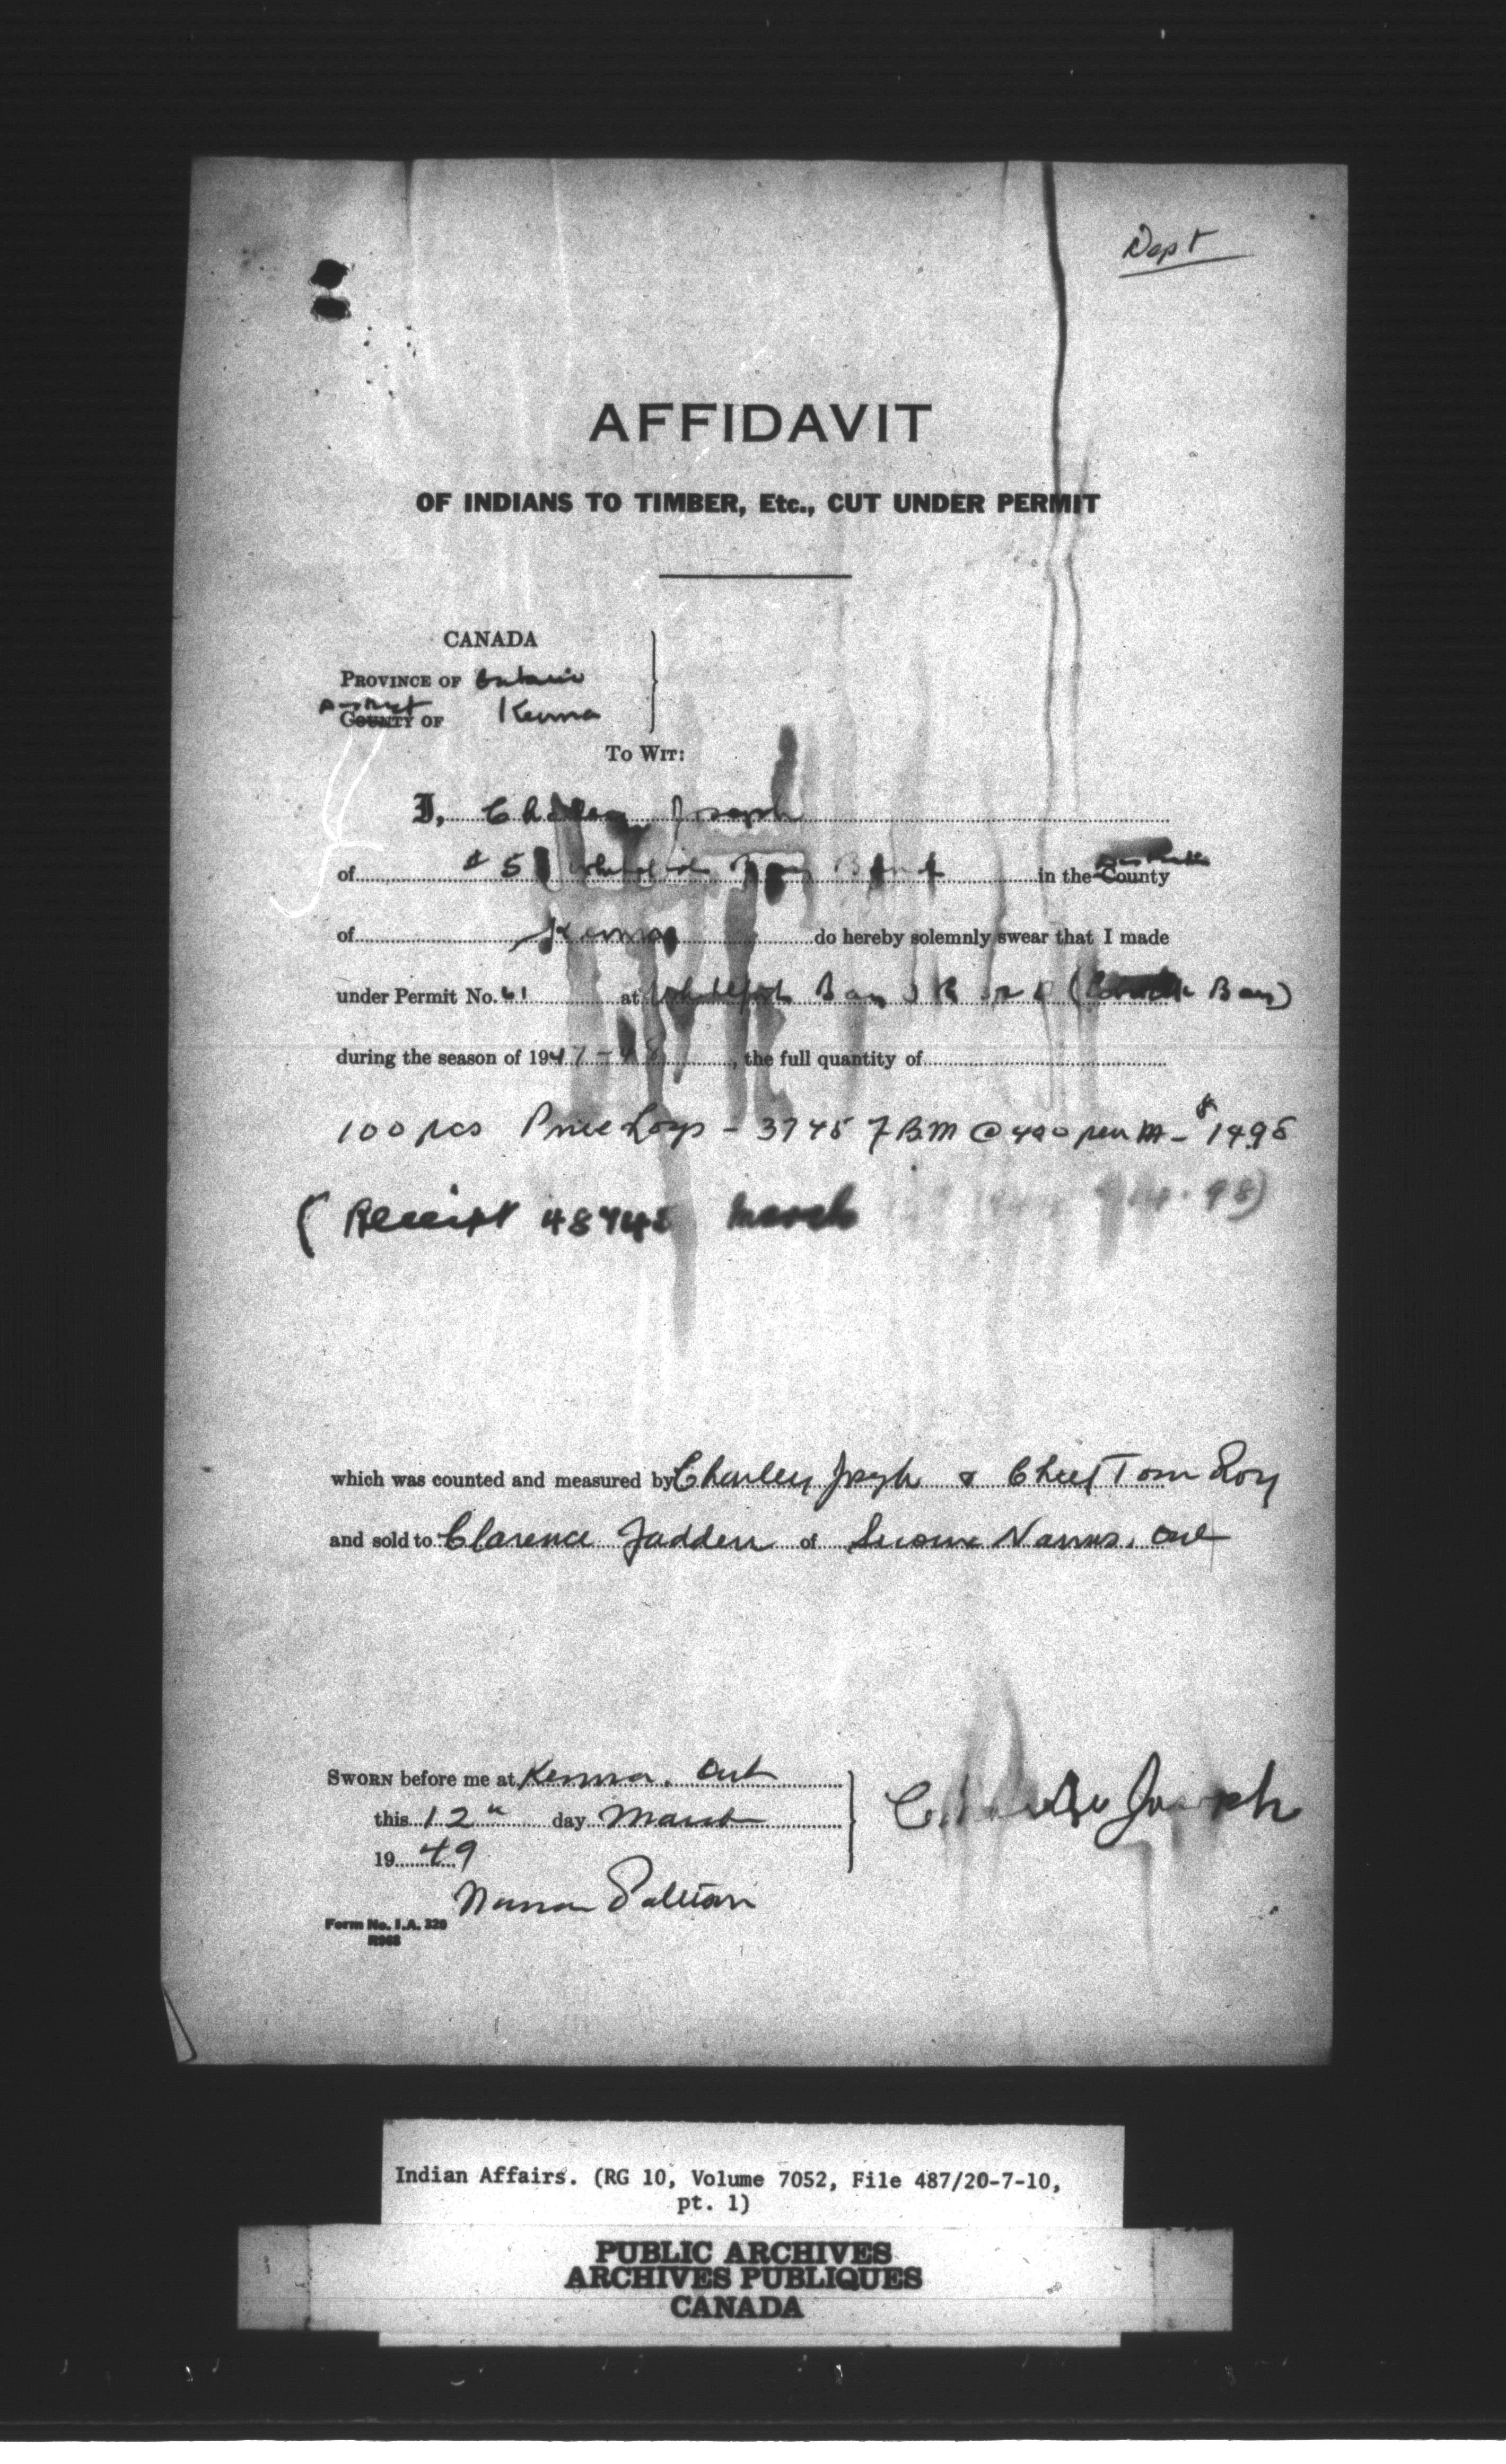 Dept
AFFIDAVIT
OF INDIANS TO TIMBER, Etc., CUT UNDER PERMIT
CANADA
PROVINCE OF Ontario
District
COUNTY OF Kenora
TO WIT:
I, Charley Joseph
of # 51 Whitefish Bay Band in the County District
of Kenora do hereby solemnly swear that I made
under Permit No. 61 at Whitefish Bay I R 32 A ( Bay)
during the season of 1947-48, the full quantity of
100 pcs Pine Logs - 3745 FBM @ 400 per M - $1498
(Receipt March 14.98)
which was counted and measured by Charley Joseph & Chief Tom Roy
and sold to Clarence Fadden of Sioux Narrows, Ont
SWORN before me at Kenora, Ont
this 12th day March
1949
Charlie Joseph
Norman Paterson
Form No. I.A. 320
R968
Indian Affairs. (RG 10, Volume 7052, File 487/20-7-10,
pt. 1)
PUBLIC ARCHIVES
ARCHIVES PUBLIQUES
CANADA